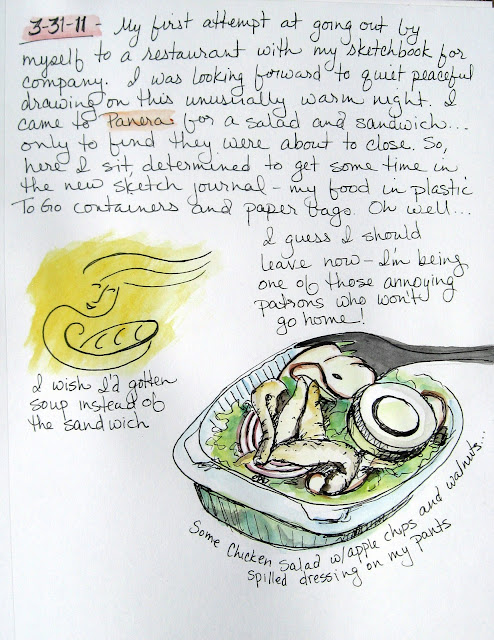 3-31-11 - My first attempt at going out by
myself to a restaurant with my sketchbook for
company. I was looking forward to quiet peaceful
drawing on this unusually warm night. I
came to Panera for a salad and sandwich...
only to find they were about to close. So,
here I sit, determined to get some time in
the new sketch journal - my food in plastic
To Go containers and paper bags. Oh well...
I guess I should
leave now - I'm being
one of those annoying
patrons who won't
go home!
I wish I'd gotten
soup instead of
the sandwich
Some Chicken Salad w/apple chips and walnuts...
spilled dressing on my pants